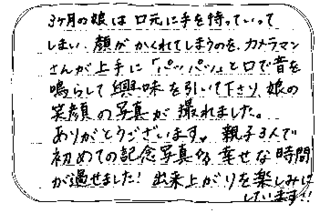 3ヶ月の娘は口元に手を持っていって
しまい、顔がかくれてしまうのを、カメラマン
さんが上手に「パッパッ」と口で音を
鳴らして興味を引いて下さり、娘の
笑顔の写真が撮れました。
ありがとうございます。親子3人で
初めての記念写真 幸せな時間
が過せました!出来上がりを楽しみに
しています!!